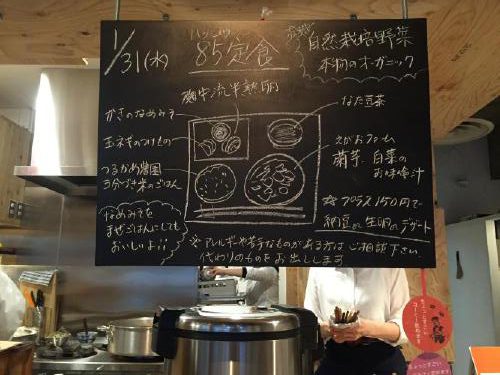 1/31(水)
ハッコウ
85定食
自然栽培野菜
本物のオーガニック
流半熟卵
かきのなめみそ
なた豆茶
玉ネギのつけもの
つるかめ農園
3分づき米のごはん
えがおファーム
南芋、白菜の
お味噌汁
なめみそを
まぜごはんにしても
おいしいよ!!
☆プラス150円で
納豆or生卵orデザート
※アレルギーや苦手なものがある方はご相談下さい
代わりのものをお出しします